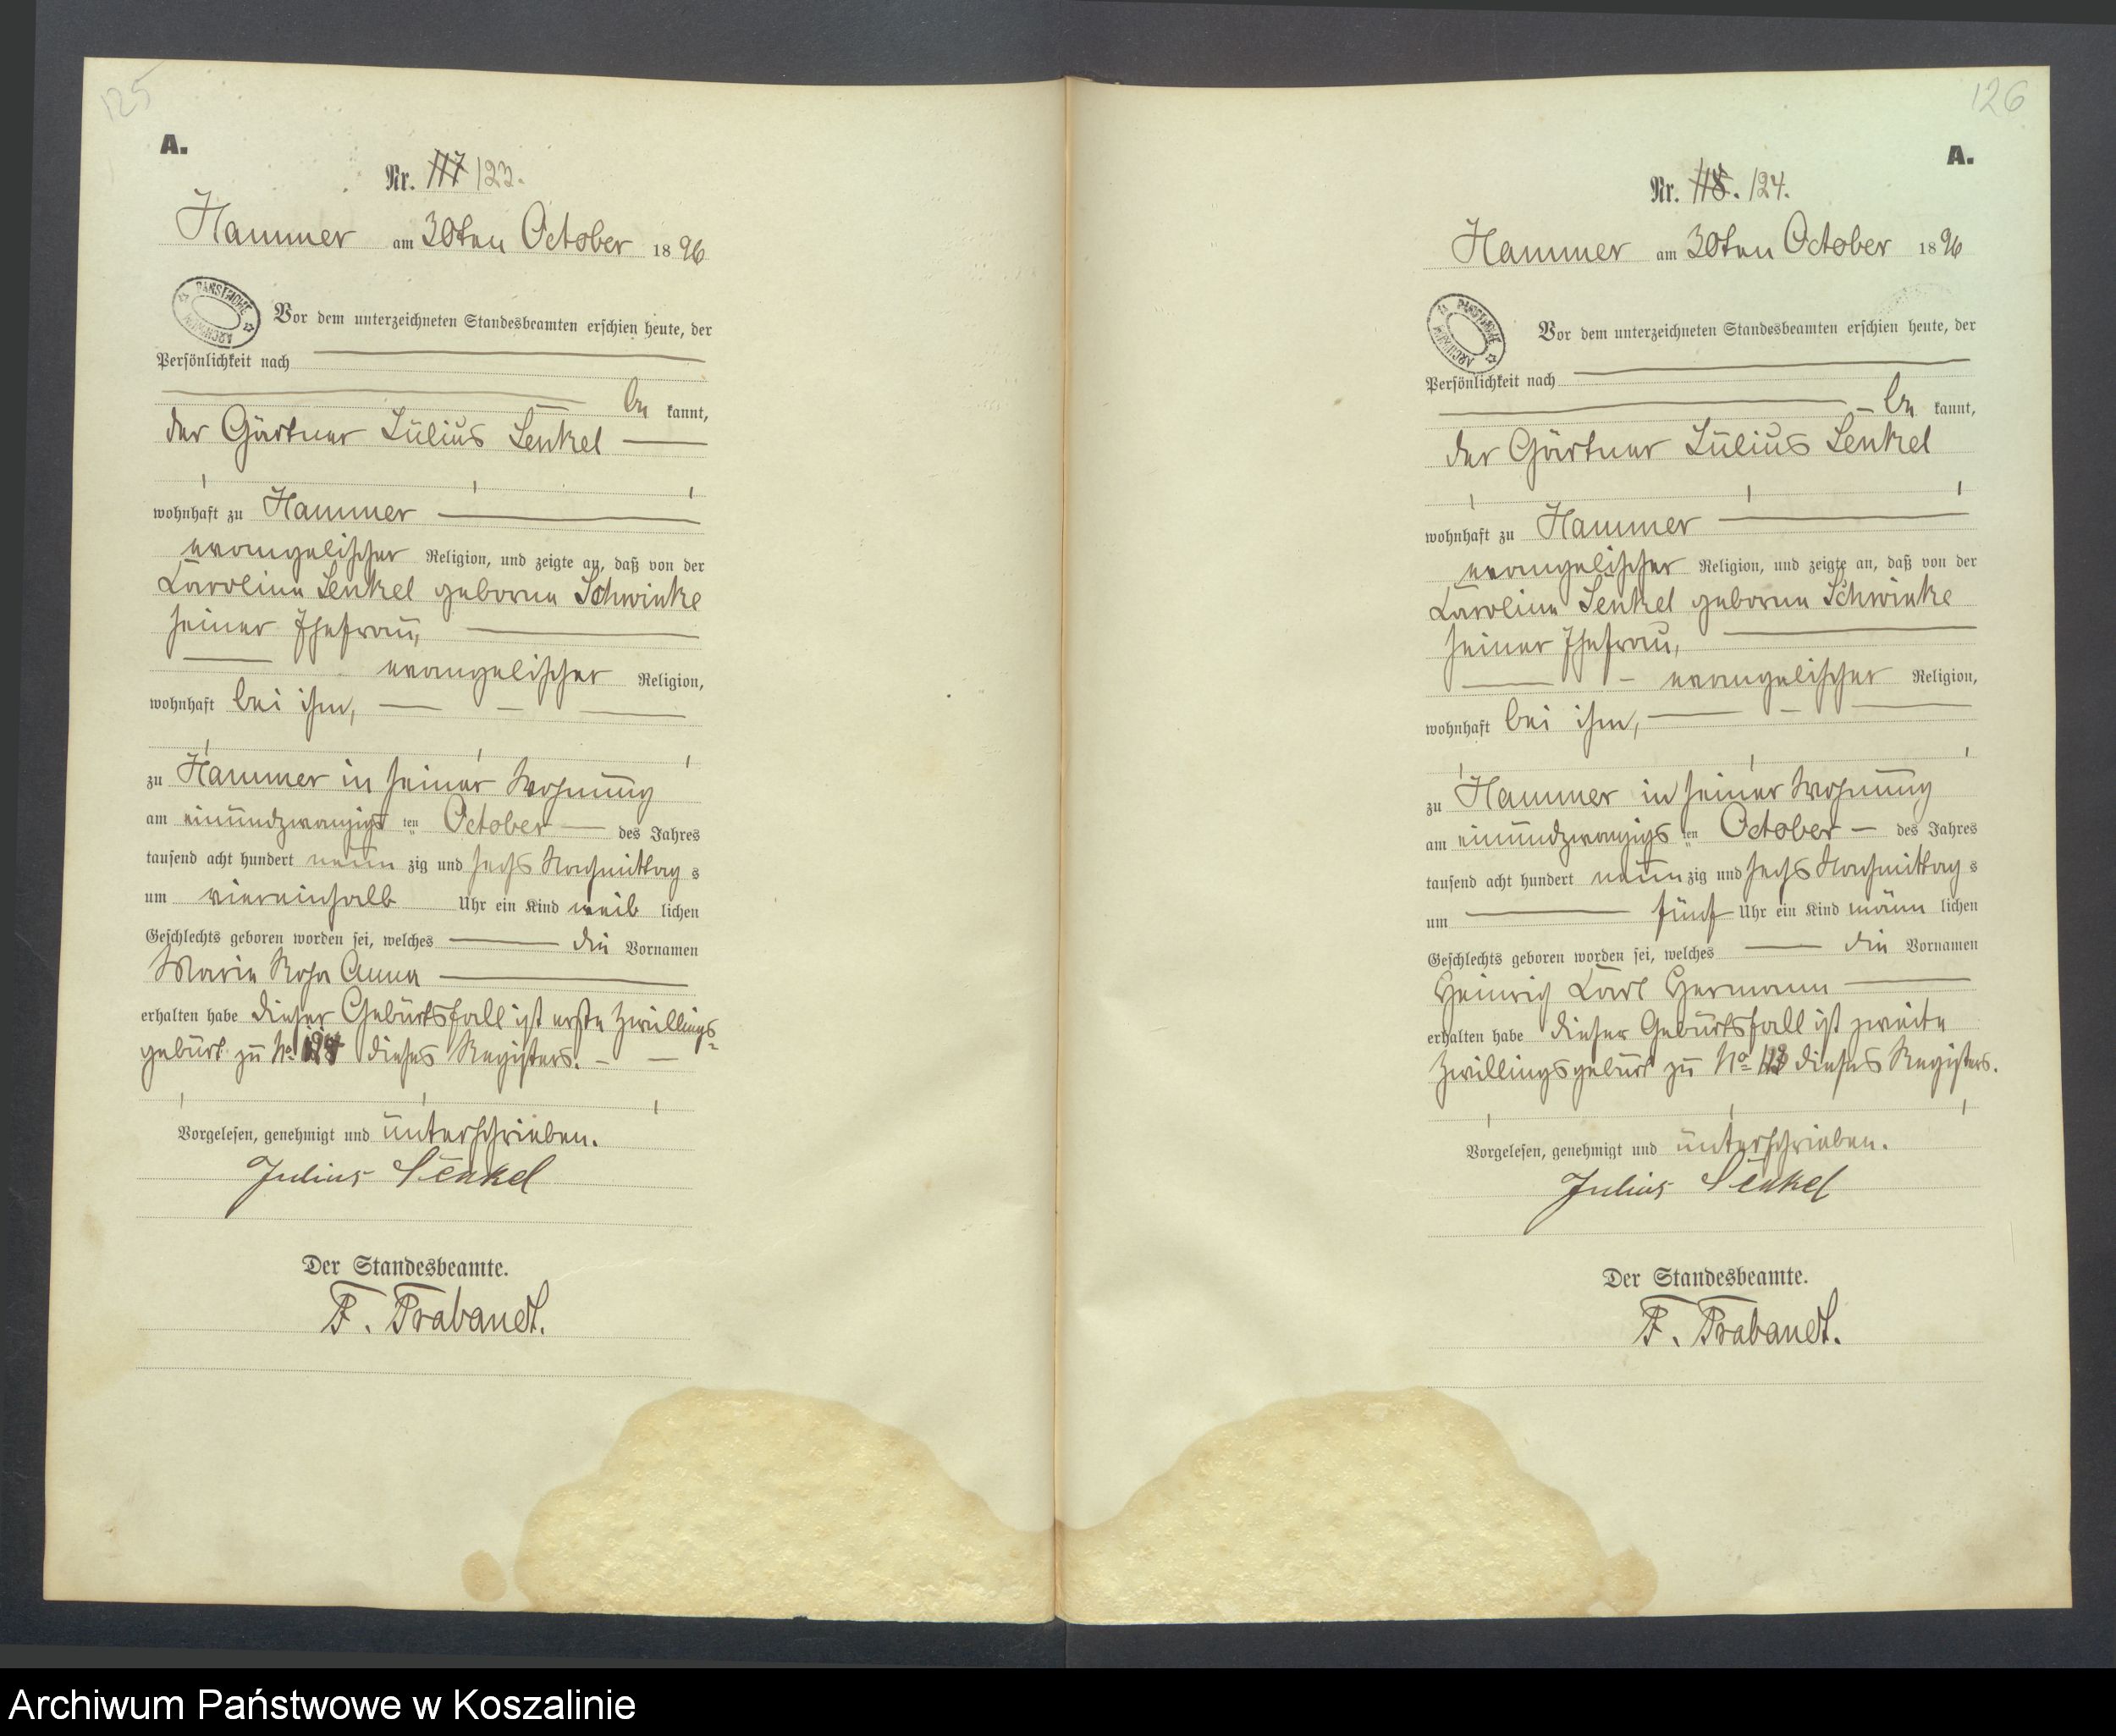 125
A.
Nr. 117 123.
Hammer am 30ten October 1896
PANSTWOWE ARCHIWUM
Vor dem unterzeichneten Standesbeamten erschien heute, der
Persönlichkeit nach
be kannt,
der Gärtner Julius Senkel
wohnhaft zu Hammer
evangelischer Religion, und zeigte an, daß von der
Caroline Senkel geborne Schwinke
seiner Ehefrau,
evangelischer Religion,
wohnhaft bei ihm,
zu Hammer in seiner Wohnung
am einundzwanzigsten October des Jahres
tausend acht hundert neunzig und sechs Nachmittags
um viereinhalb Uhr ein Kind weiblichen
Geschlechts geboren worden sei, welches die Vornamen
Marie Rosa Anna
erhalten habe dieser Geburtsfall ist erste Zwillings-
geburt zu No 124 dieses Registers.
Vorgelesen, genehmigt und unterschrieben.
Julius Senkel
Der Standesbeamte.
F. Prabandt.
126
A.
Nr. 118. 124.
Hammer am 30ten October 1896
PANSTWOWE ARCHIWUM
Vor dem unterzeichneten Standesbeamten erschien heute, der
Persönlichkeit nach
be kannt,
der Gärtner Julius Senkel
wohnhaft zu Hammer
evangelischer Religion, und zeigte an, daß von der
Caroline Senkel geborne Schwinke
seiner Ehefrau,
evangelischer Religion,
wohnhaft bei ihm,
zu Hammer in seiner Wohnung
am einundzwanzigsten October des Jahres
tausend acht hundert neunzig und sechs Nachmittags
um fünf Uhr ein Kind männlichen
Geschlechts geboren worden sei, welches die Vornamen
Heinrich Carl Hermann
erhalten habe dieser Geburtsfall ist zweite
Zwillingsgeburt zu No 123 dieses Registers.
Vorgelesen, genehmigt und unterschrieben.
Julius Senkel
Der Standesbeamte.
F. Prabandt.
Archiwum Państwowe w Koszalinie